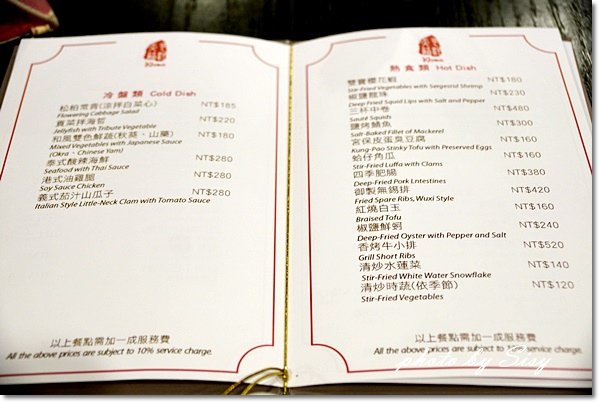 冷盤類 Cold Dish
松柏常青(涼拌白菜心) NT$185
Flowering Cabbage Salad
貢菜拌海蜇 NT$220
Jellyfish with Tribute Vegetable
和風雙色鮮蔬(秋葵、山藥) NT$180
Mixed Vegetables with Japanese Sauce
(Okra、Chinese Yam)
泰式酸辣海鮮 NT$280
Seafood with Thai Sauce
港式油雞腿 NT$280
Soy Sauce Chicken
義式茄汁山瓜子 NT$280
Italian Style Little-Neck Clam with Tomato Sauce
以上餐點需加一成服務費
All the above prices are subject to 10% service charge.
熱食類 Hot Dish
雙寶櫻花蝦 NT$180
Stir-Fried Vegetables with Sergestid Shrimp
椒鹽龍珠 NT$230
Deep-Fried Squid Lips with Salt and Pepper
三杯中卷 NT$480
Sauté Squids
鹽烤鯖魚 NT$300
Salt-Baked Fillet of Mackerel
宮保皮蛋臭豆腐 NT$160
Kung-Pao Stinky Tofu with Preserved Eggs
蛤仔角瓜 NT$160
Stir-Fried Luffa with Clams
四季肥腸 NT$380
Deep-Fried Pork Lntestines
御製無錫排 NT$420
Fried Spare Ribs, Wuxi Style
紅燒白玉 NT$160
Braised Tofu
椒鹽鮮蚵 NT$240
Deep-Fried Oyster with Pepper and Salt
香烤牛小排 NT$520
Grill Short Ribs
清炒水蓮菜 NT$140
Stir-Fried White Water Snowflake
清炒時蔬(依季節) NT$120
Stir-Fried Vegetables
以上餐點需加一成服務費
All the above prices are subject to 10% service charge.
photo by